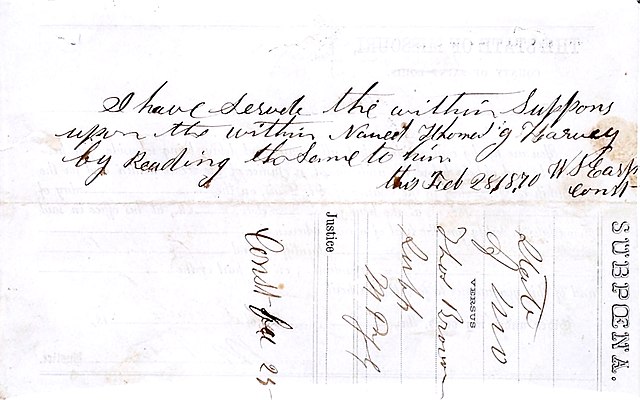 I have Served the within Suppons
upon the within Named Thomas g Harvey
by Reading the Same to him
this Feb 28, 1870 W S Earp
Const
SUBPŒNA.
State
of Mo
VERSUS
Thos Brown
Justice
Const fee 25